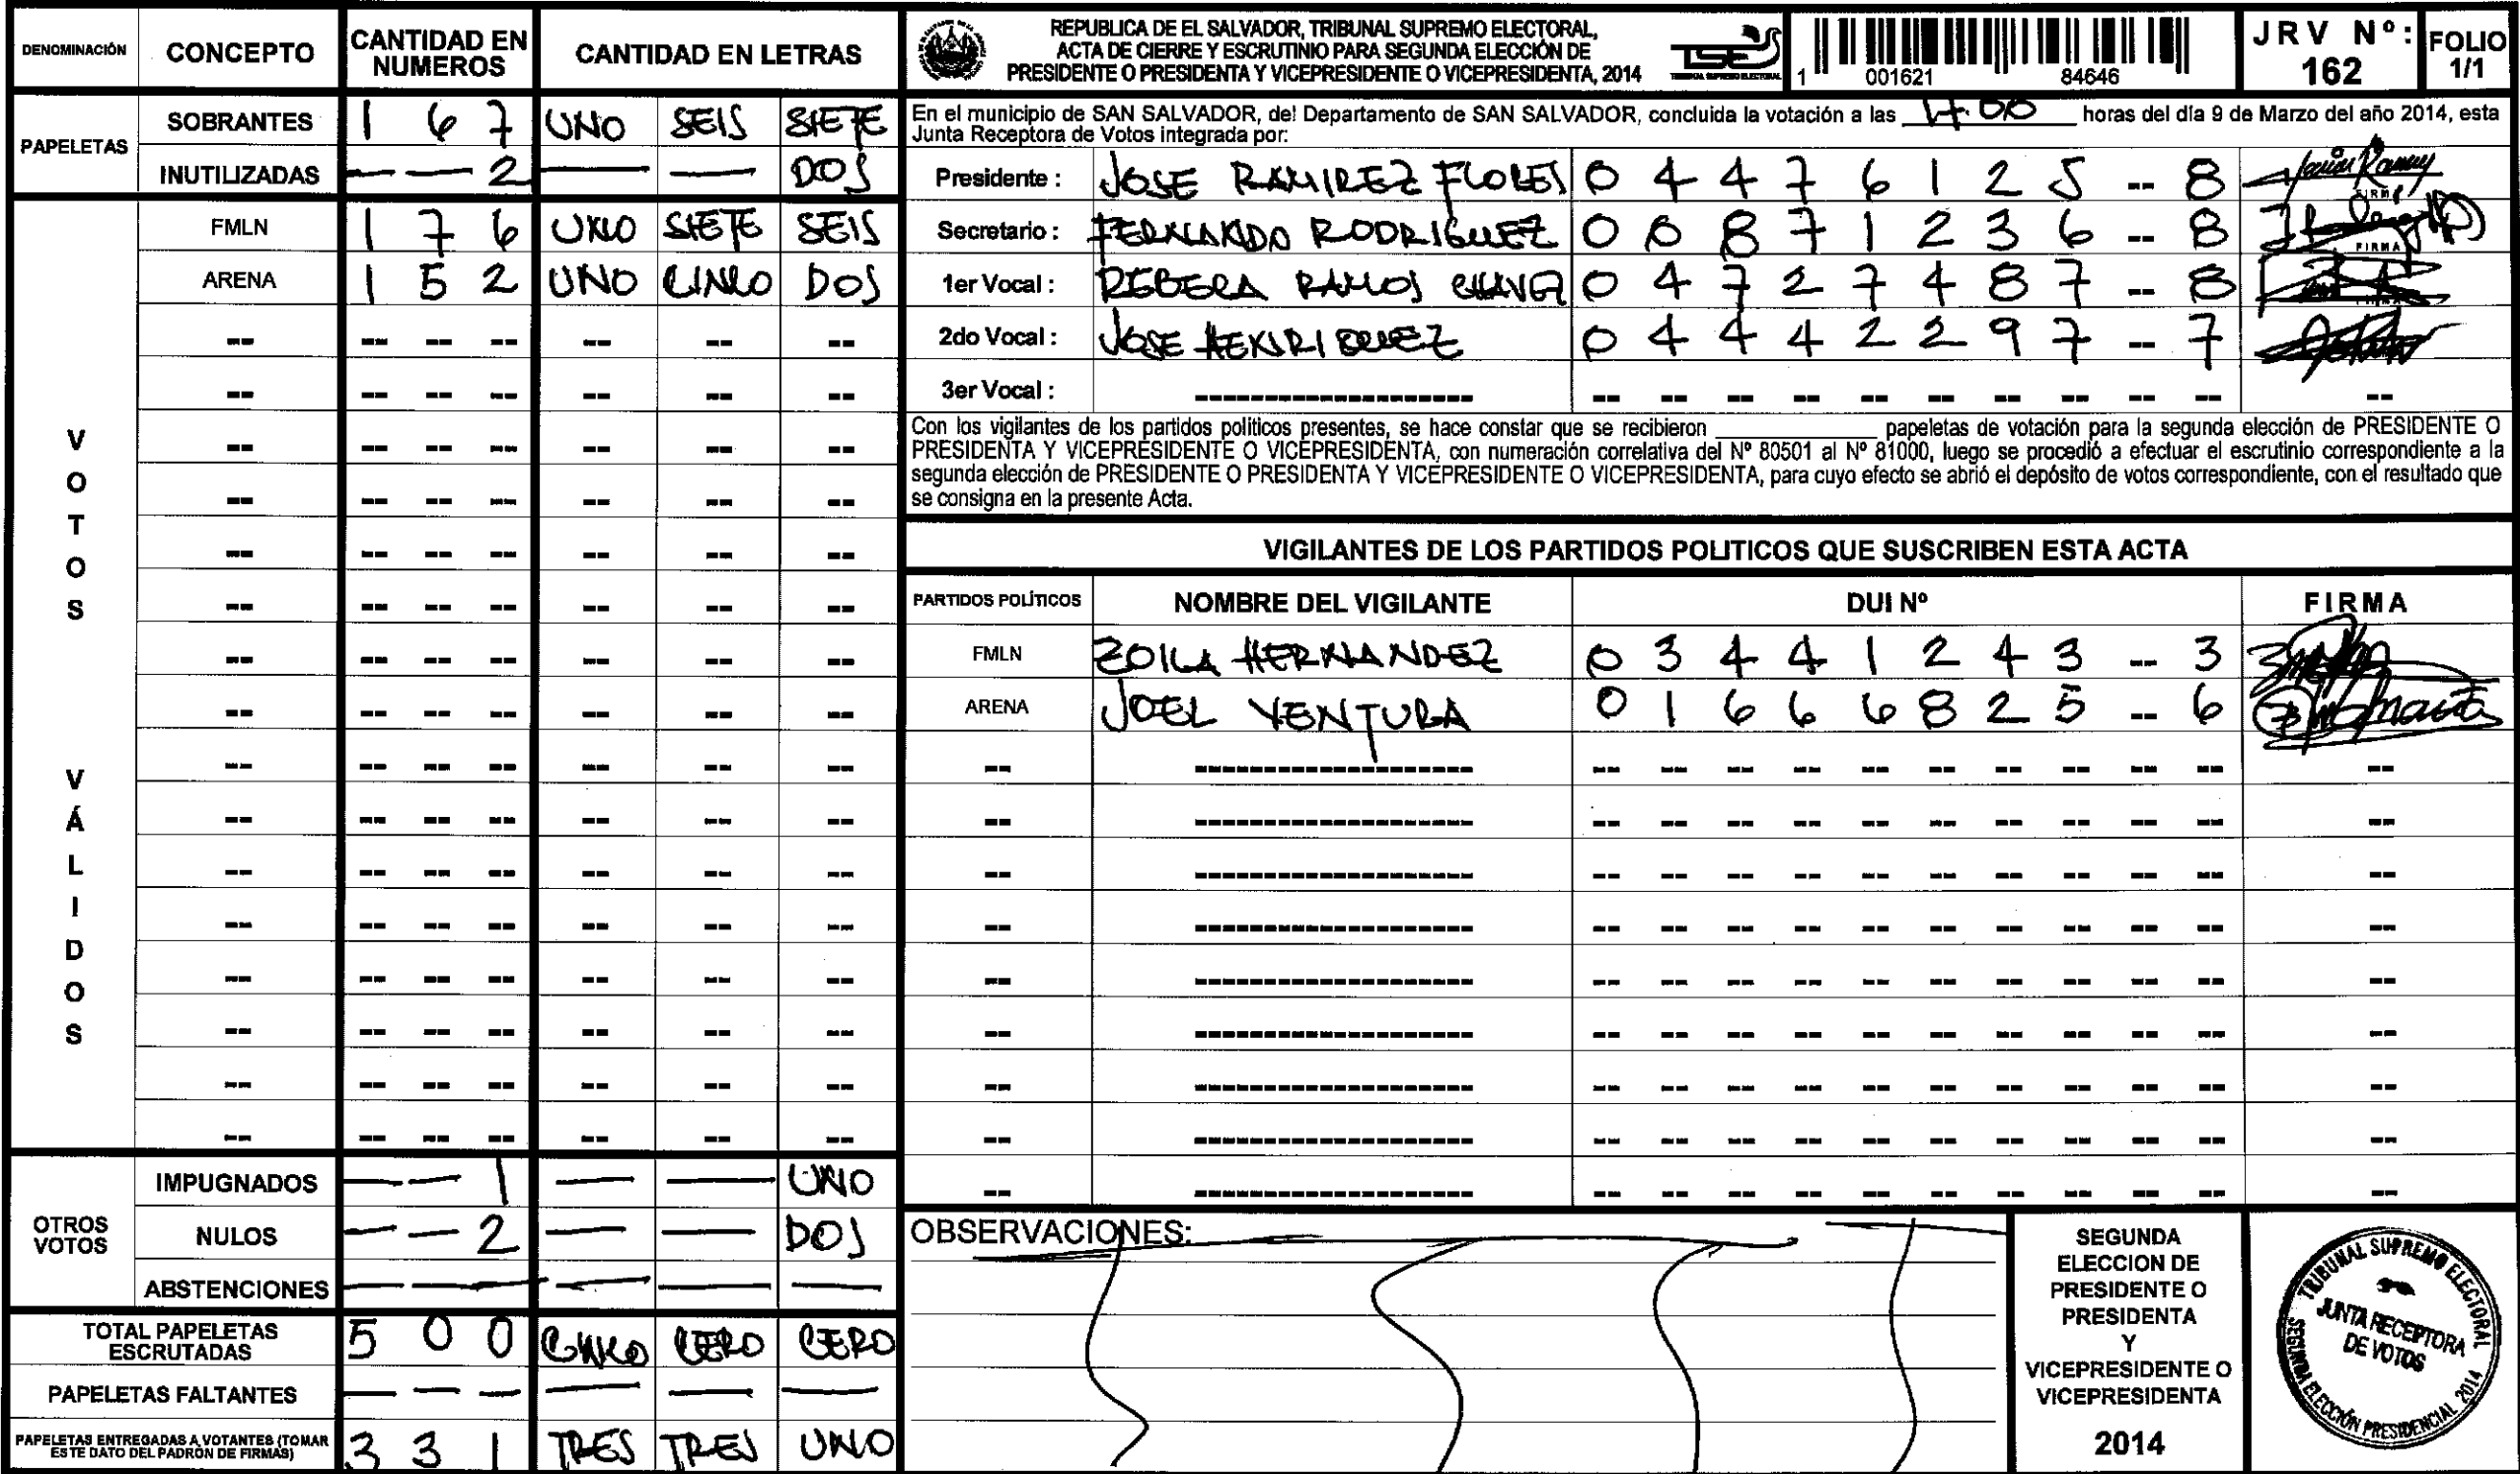 DENOMINACIÓN CONCEPTO CANTIDAD EN NUMEROS CANTIDAD EN LETRAS
PAPELETAS
SOBRANTES 1 6 7 UNO SEIS SIETE
INUTILIZADAS — — 2 — — DOS
VOTOS VÁLIDOS
FMLN 1 7 6 UNO SIETE SEIS
ARENA 1 5 2 UNO CINCO DOS
OTROS VOTOS
IMPUGNADOS — — 1 — — UNO
NULOS — — 2 — — DOS
ABSTENCIONES — — — — — —
TOTAL PAPELETAS ESCRUTADAS 5 0 0 CINCO CERO CERO
PAPELETAS FALTANTES — — — — — —
PAPELETAS ENTREGADAS A VOTANTES (TOMAR ESTE DATO DEL PADRÓN DE FIRMAS) 3 3 1 TRES TRES UNO
REPUBLICA DE EL SALVADOR, TRIBUNAL SUPREMO ELECTORAL,
ACTA DE CIERRE Y ESCRUTINIO PARA SEGUNDA ELECCIÓN DE
PRESIDENTE O PRESIDENTA Y VICEPRESIDENTE O VICEPRESIDENTA, 2014
TSE
TRIBUNAL SUPREMO ELECTORAL
1 001621 84646
JRV Nº: 162
FOLIO 1/1
En el municipio de SAN SALVADOR, del Departamento de SAN SALVADOR, concluida la votación a las 17:00 horas del día 9 de Marzo del año 2014, esta
Junta Receptora de Votos integrada por:
Presidente : JOSE RAMIREZ FLORES 0 4 4 7 6 1 2 5 -- 8 FIRMA
Secretario : FERNANDO RODRIGUEZ 0 0 8 7 1 2 3 6 -- 8 FIRMA
1er Vocal : REBECA RAMOS CHAVEZ 0 4 7 2 7 4 8 7 -- 8
2do Vocal : JOSE HENRIQUEZ 0 4 4 4 2 2 9 7 -- 7
3er Vocal :
Con los vigilantes de los partidos politicos presentes, se hace constar que se recibieron ________ papeletas de votación para la segunda elección de PRESIDENTE O
PRESIDENTA Y VICEPRESIDENTE O VICEPRESIDENTA, con numeración correlativa del Nº 80501 al Nº 81000, luego se procedió a efectuar el escrutinio correspondiente a la
segunda elección de PRESIDENTE O PRESIDENTA Y VICEPRESIDENTE O VICEPRESIDENTA, para cuyo efecto se abrió el depósito de votos correspondiente, con el resultado que
se consigna en la presente Acta.
VIGILANTES DE LOS PARTIDOS POLITICOS QUE SUSCRIBEN ESTA ACTA
PARTIDOS POLÍTICOS NOMBRE DEL VIGILANTE DUI Nº FIRMA
FMLN ZOILA HERNANDEZ 0 3 4 4 1 2 4 3 -- 3
ARENA JOEL VENTURA 0 1 6 6 6 8 2 5 -- 6
OBSERVACIONES:
SEGUNDA
ELECCION DE
PRESIDENTE O
PRESIDENTA
Y
VICEPRESIDENTE O
VICEPRESIDENTA
2014
TRIBUNAL SUPREMO ELECTORAL
JUNTA RECEPTORA
DE VOTOS
SEGUNDA ELECCIÓN PRESIDENCIAL 2014